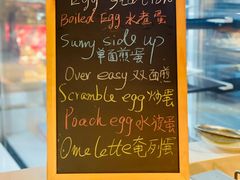 Egg Station
Boiled Egg 水煮蛋
Sunny side up
单面煎蛋
Over easy 双面煎
Scramble egg 炒蛋
Poach egg 水波蛋
Omelette 奄列蛋